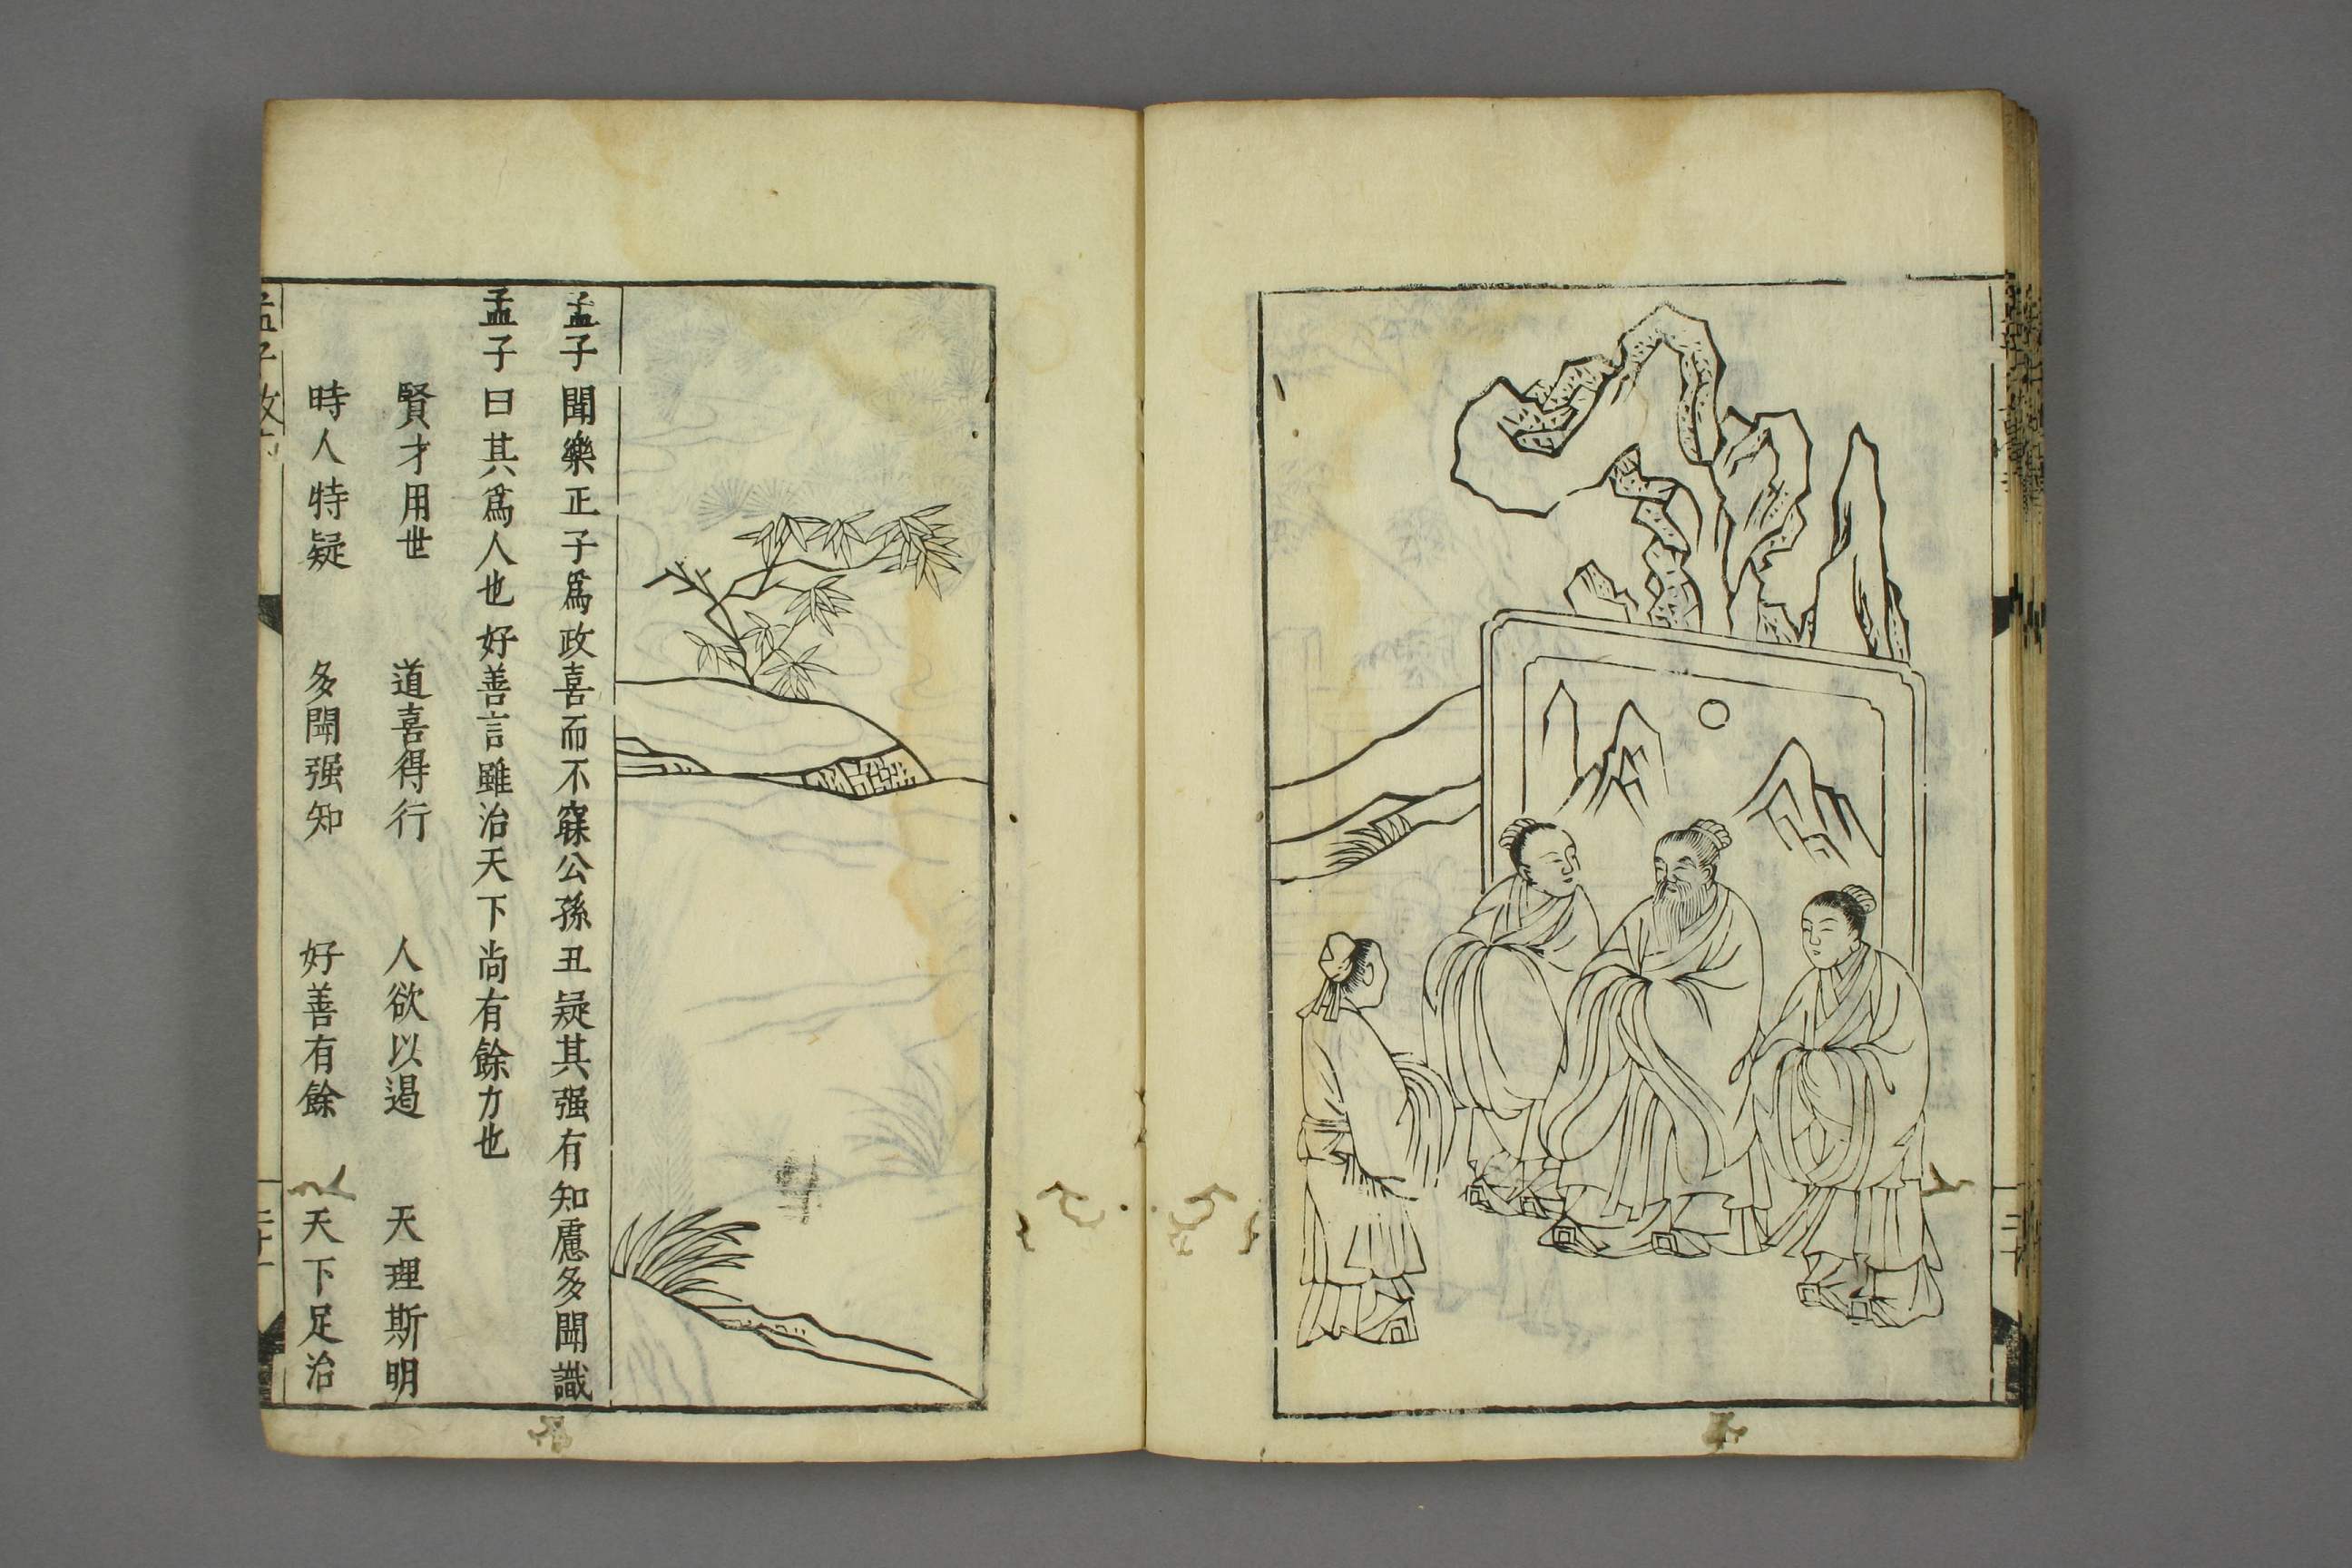 孟子聞樂正子爲政喜而不寐公孫丑疑其强有知慮多聞識
孟子曰其爲人也好善言雖治天下尚有餘力也
賢才用世　道喜得行　人欲以遏　天理斯明
時人特疑　多聞强知　好善有餘　天下足治